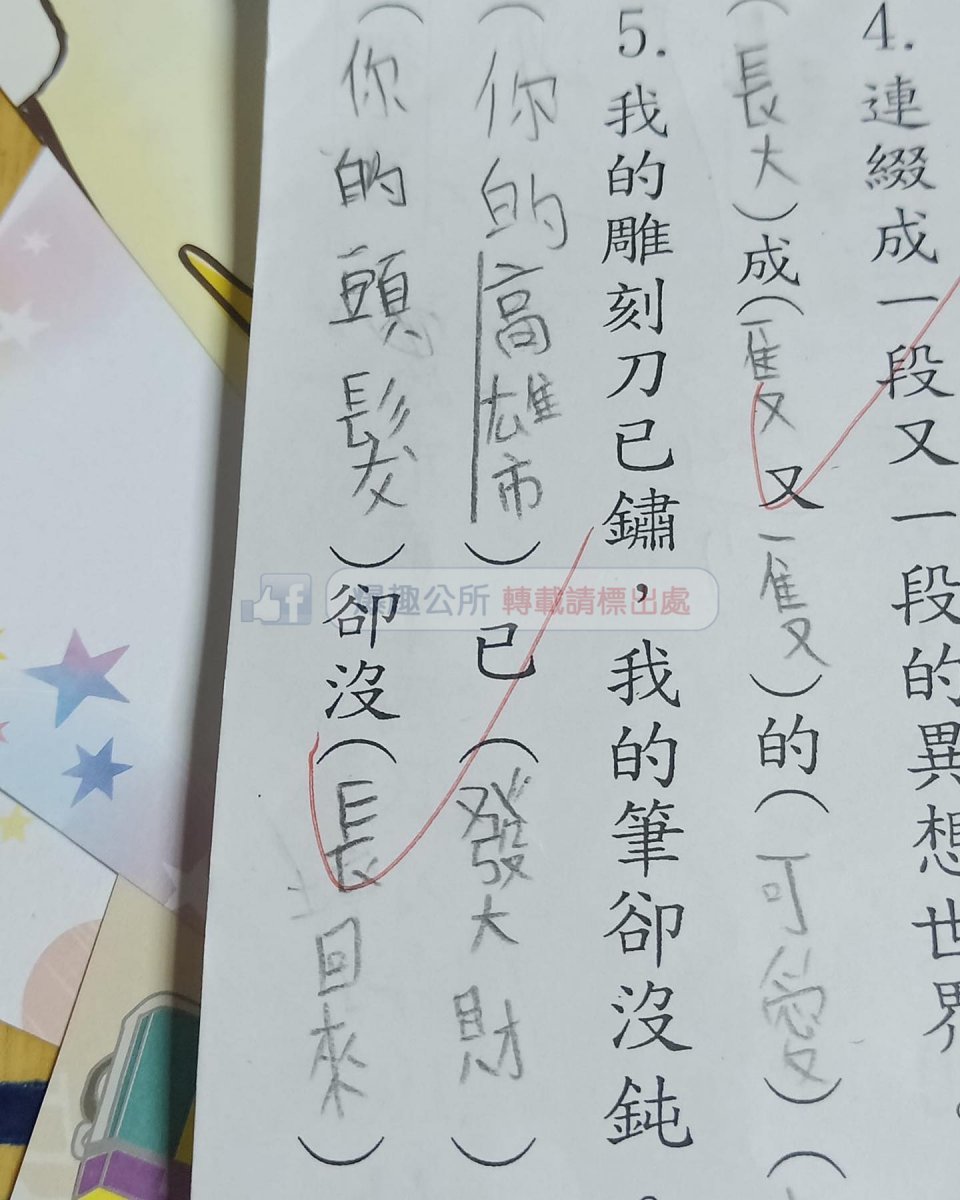 4. 連綴成一段又一段的異想世界。
(長大)成(一隻又一隻)的(可愛)(
5. 我的雕刻刀已鏽，我的筆卻沒鈍。
(你的高雄市)已(發大財)
(你的頭髮)卻沒(長回來)
爆趣公所 轉載請標出處